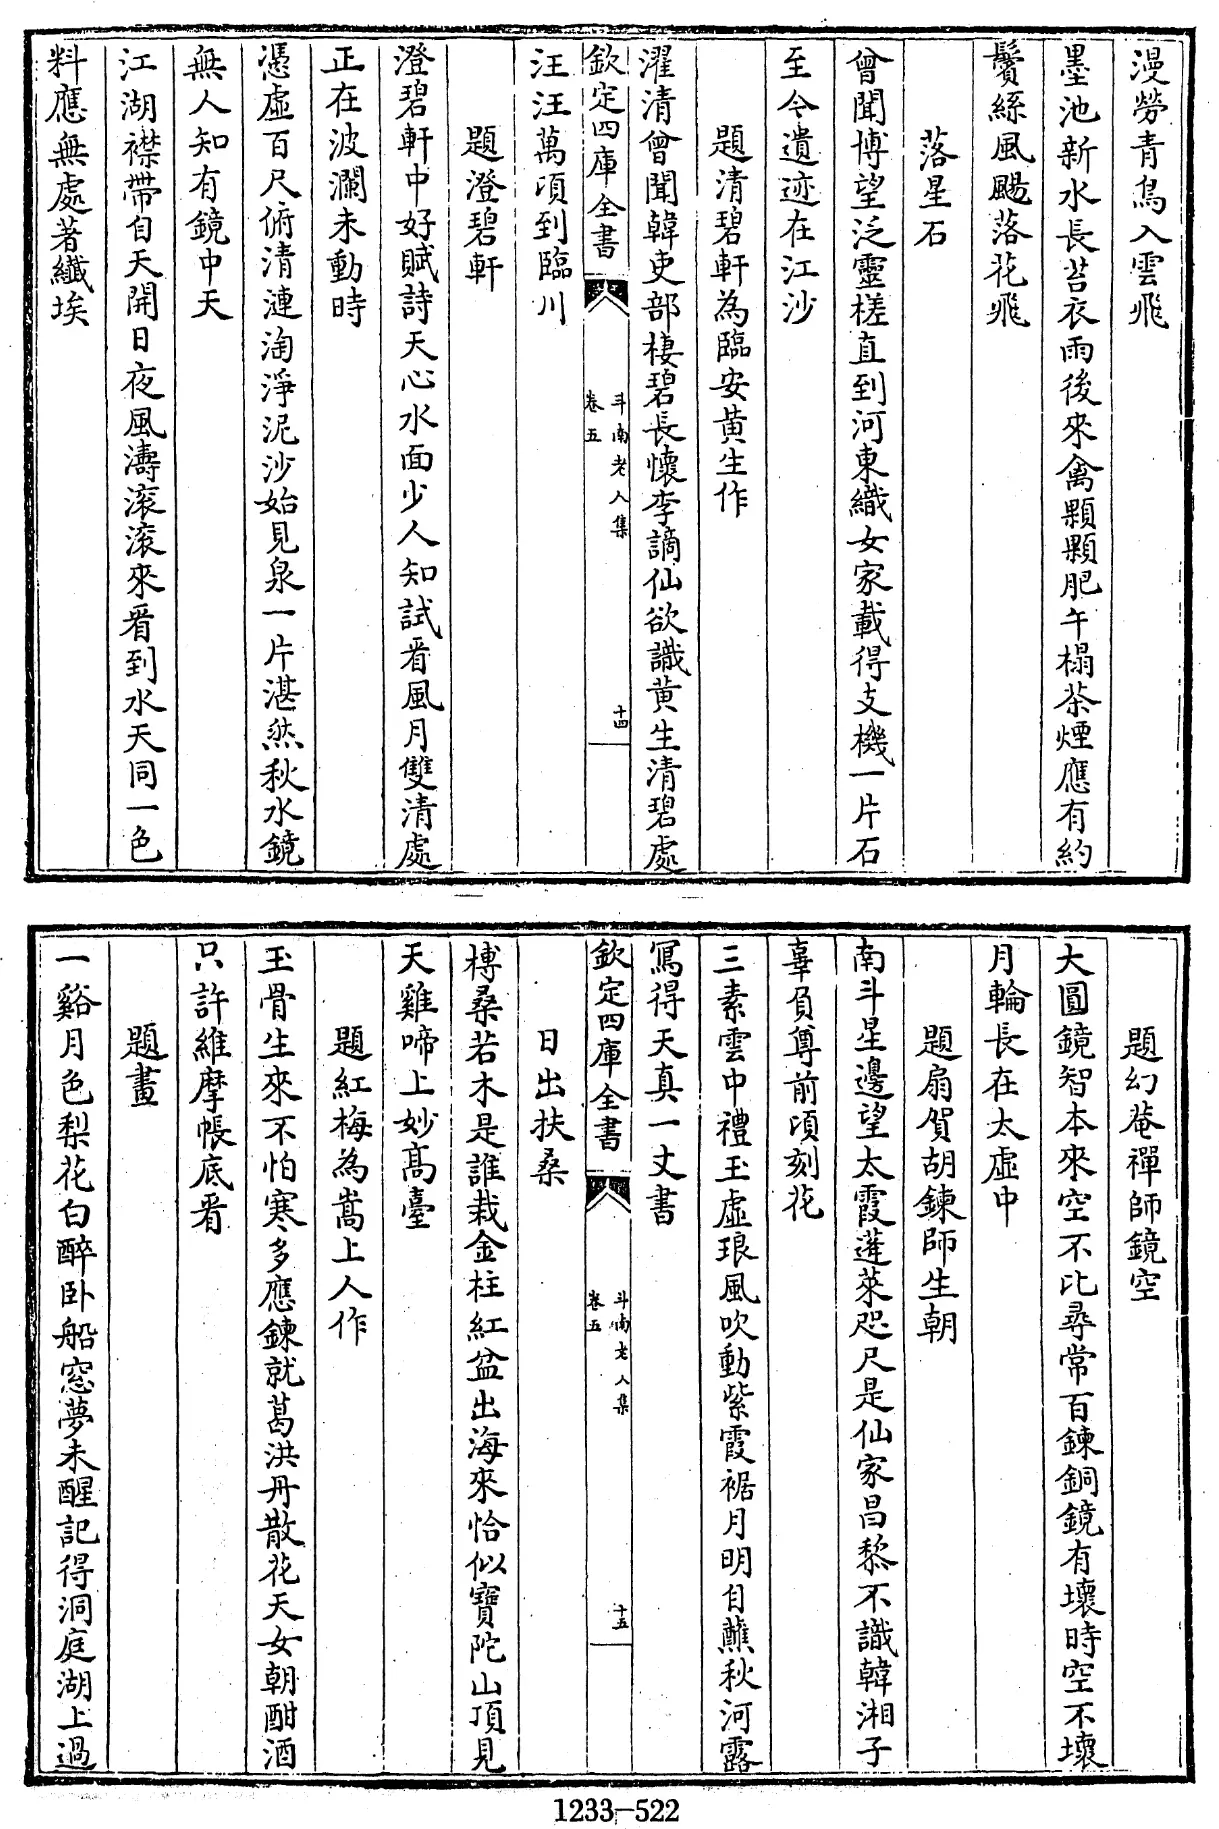 漫勞青鳥入雲飛
墨池新水長苔衣雨後來禽顆顆肥午榻茶煙應有約
鬢絲風颺落花飛
落星石
曾聞博望泛靈槎直到河東織女家載得支機一片石
至今遺迹在江沙
題清碧軒為臨安黄生作
濯清曾聞韓吏部棲碧長懷李謫仙欲識黄生清碧處
欽定四庫全書
斗南老人集
卷五
十四
汪汪萬頃到臨川
題澄碧軒
澄碧軒中好賦詩天心水面少人知試看風月雙清處
正在波瀾未動時
憑虛百尺俯清漣淘淨泥沙始見泉一片湛然秋水鏡
無人知有鏡中天
江湖襟帶自天開日夜風濤滚滚來看到水天同一色
料應無處著纖埃
題幻菴禪師鏡空
大圓鏡智本來空不比尋常百鍊銅鏡有壞時空不壞
月輪長在太虛中
題扇賀胡鍊師生朝
南斗星邊望太霞蓬萊咫尺是仙家昌黎不識韓湘子
辜負尊前頃刻花
三素雲中禮玉虛琅風吹動紫霞裾月明自蘸秋河露
寫得天真一丈書
欽定四庫全書
斗南老人集
卷五
十五
日出扶桑
榑桑若木是誰栽金柱紅盆出海來恰似寶陀山頂見
天雞啼上妙高臺
題紅梅為嵩上人作
玉骨生來不怕寒多應鍊就葛洪丹散花天女朝酣酒
只許維摩帳底看
題畫
一谿月色梨花白醉卧船窓夢未醒記得洞庭湖上過
1233-522